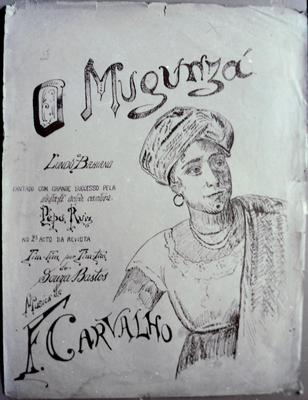 O Mugunzá
Lundú Bahiano
CANTADO COM GRANDE SUCCESSO PELA
Pepa Ruiz
NO 2º ACTO DA REVISTA
Tim-tim por Tim-tim
de
Souza Bastos
Musica de
F. CARVALHO